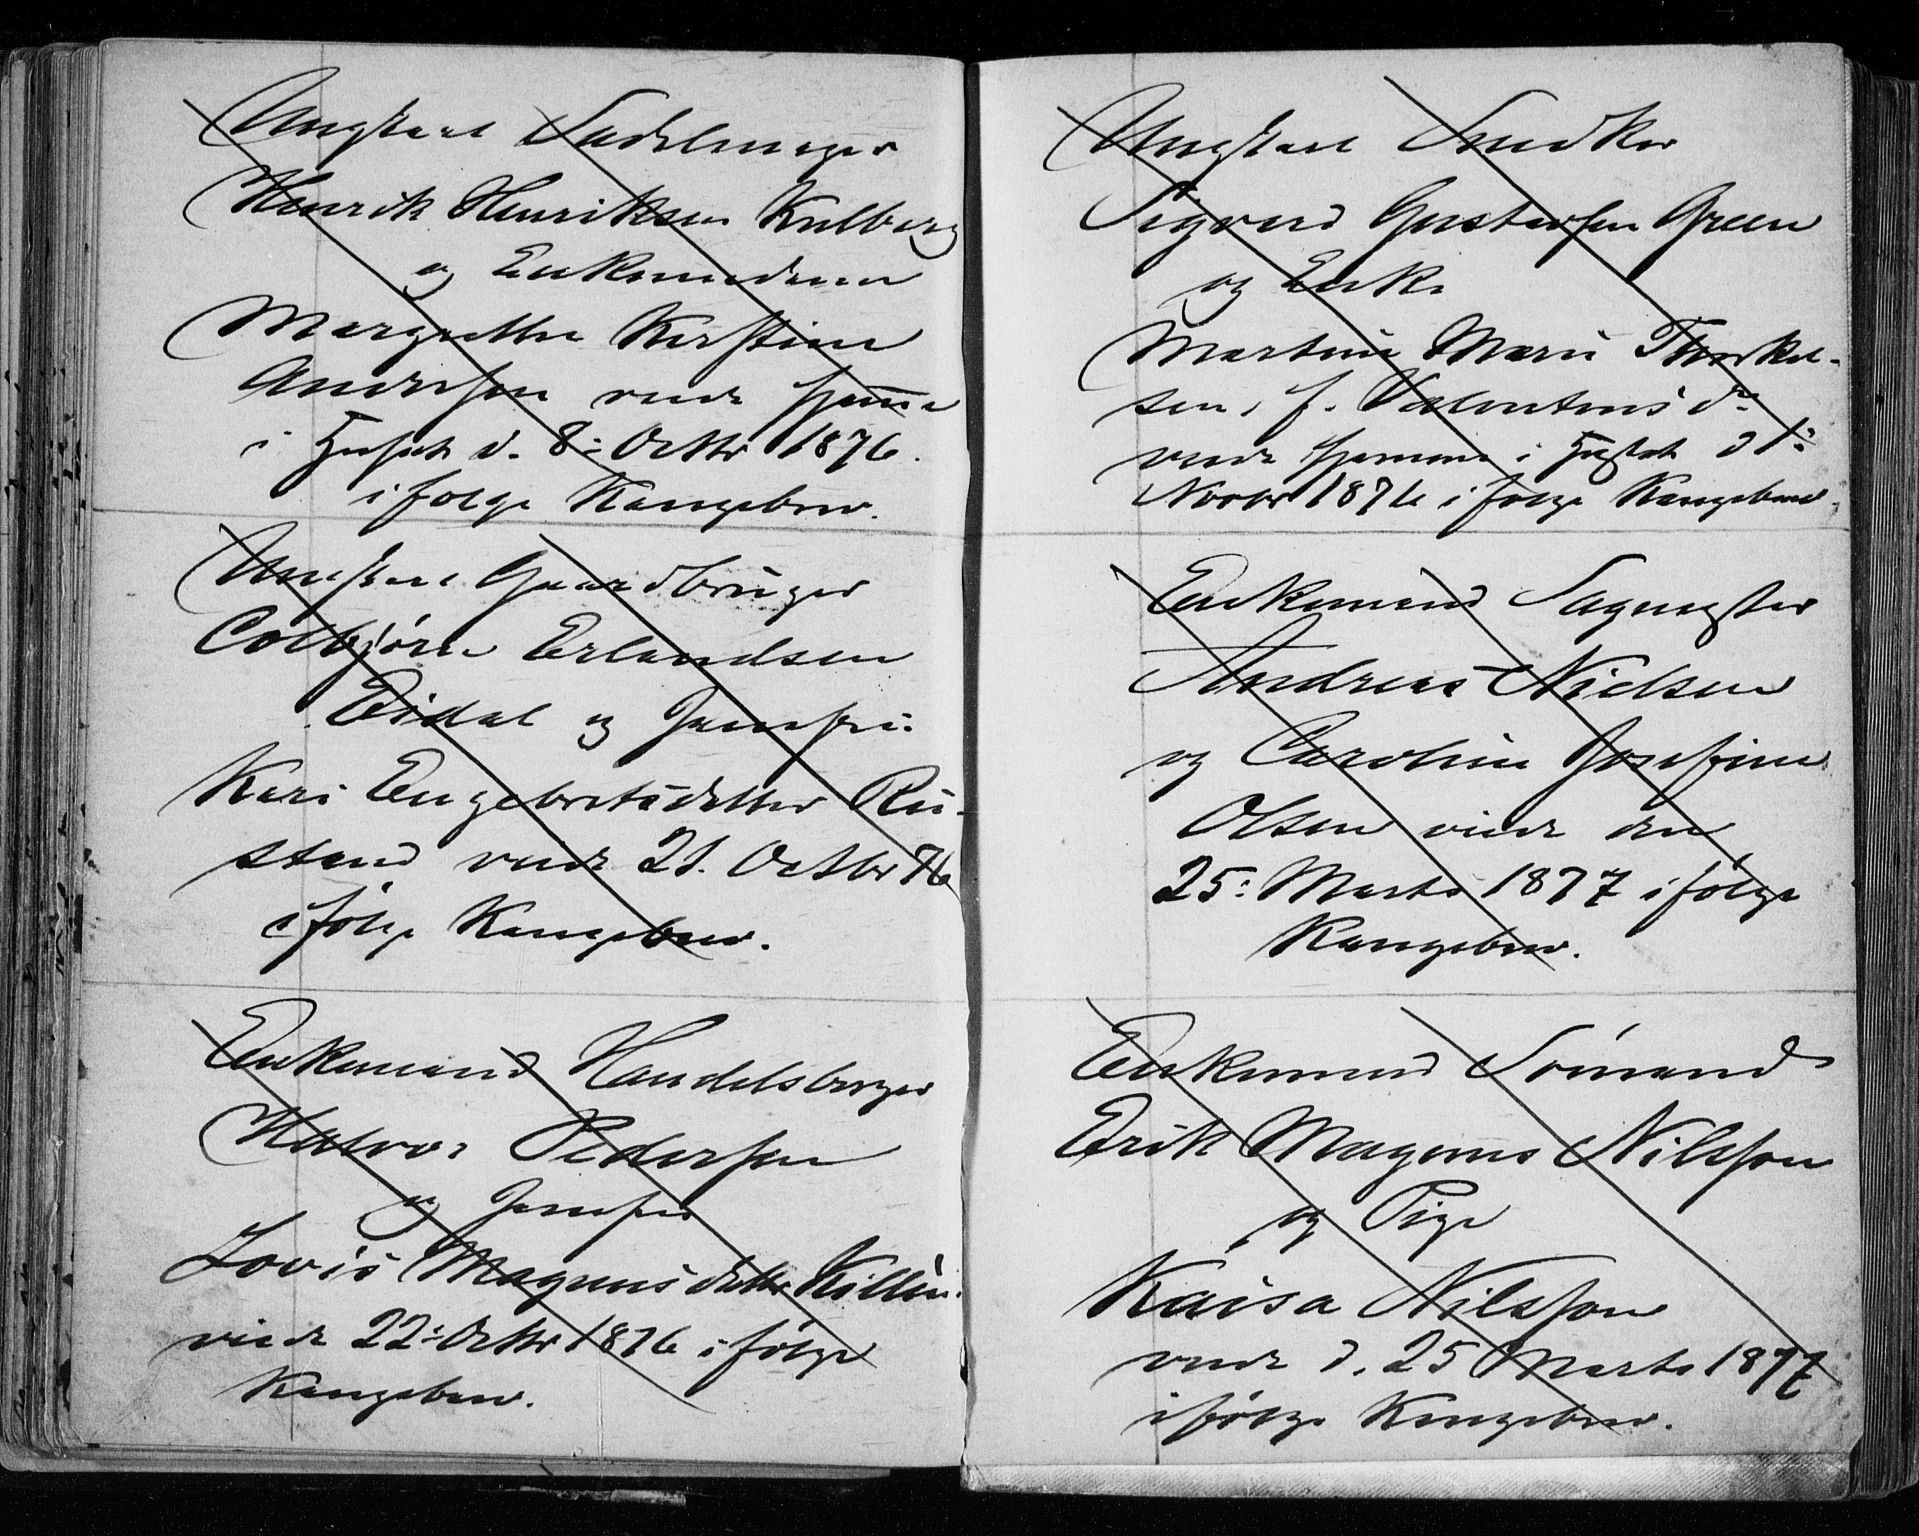 Ungkarl Sadelmager
Henrik Henriksen Kulberg
og Enkemadam
Margrethe Kirstine
Andersen viede hjemme
i Huset d. 8: Octbr 1876.
ifølge Kongebrev.
Ungkarl Gaardbruger
Colbjørn Erlandsen
Eidal og Jomfru
Kari Engebretsdatter Ru-
stand viede 21. Octbr 76
ifølge Kongebrev.
Enkemand Handelsborger
Halvor Pedersen
og Jomfru
Lovis Magnusdatter
viede 22: Octbr 1876 ifølge
Kongebrev.
Ungkarl Snedker
Sigvard Gustafsen Green
og Enke
Martine Marie Thorkel-
sen, f. Valentins dr
viede hjemme i Huset d 1:
Novbr 1876 ifølge Kongebrev.
Enkemand Sagmester
Andreas Nielsen
og Caroline Josefine
Olsen viede den
25: Marts 1877 ifølge
Kongebrev.
Enkemand Sømand
Erik Magnus Nilsson
og Pige
Kaisa Nilsson
viede d. 25 Marts 1877
ifølge Kongebrev.